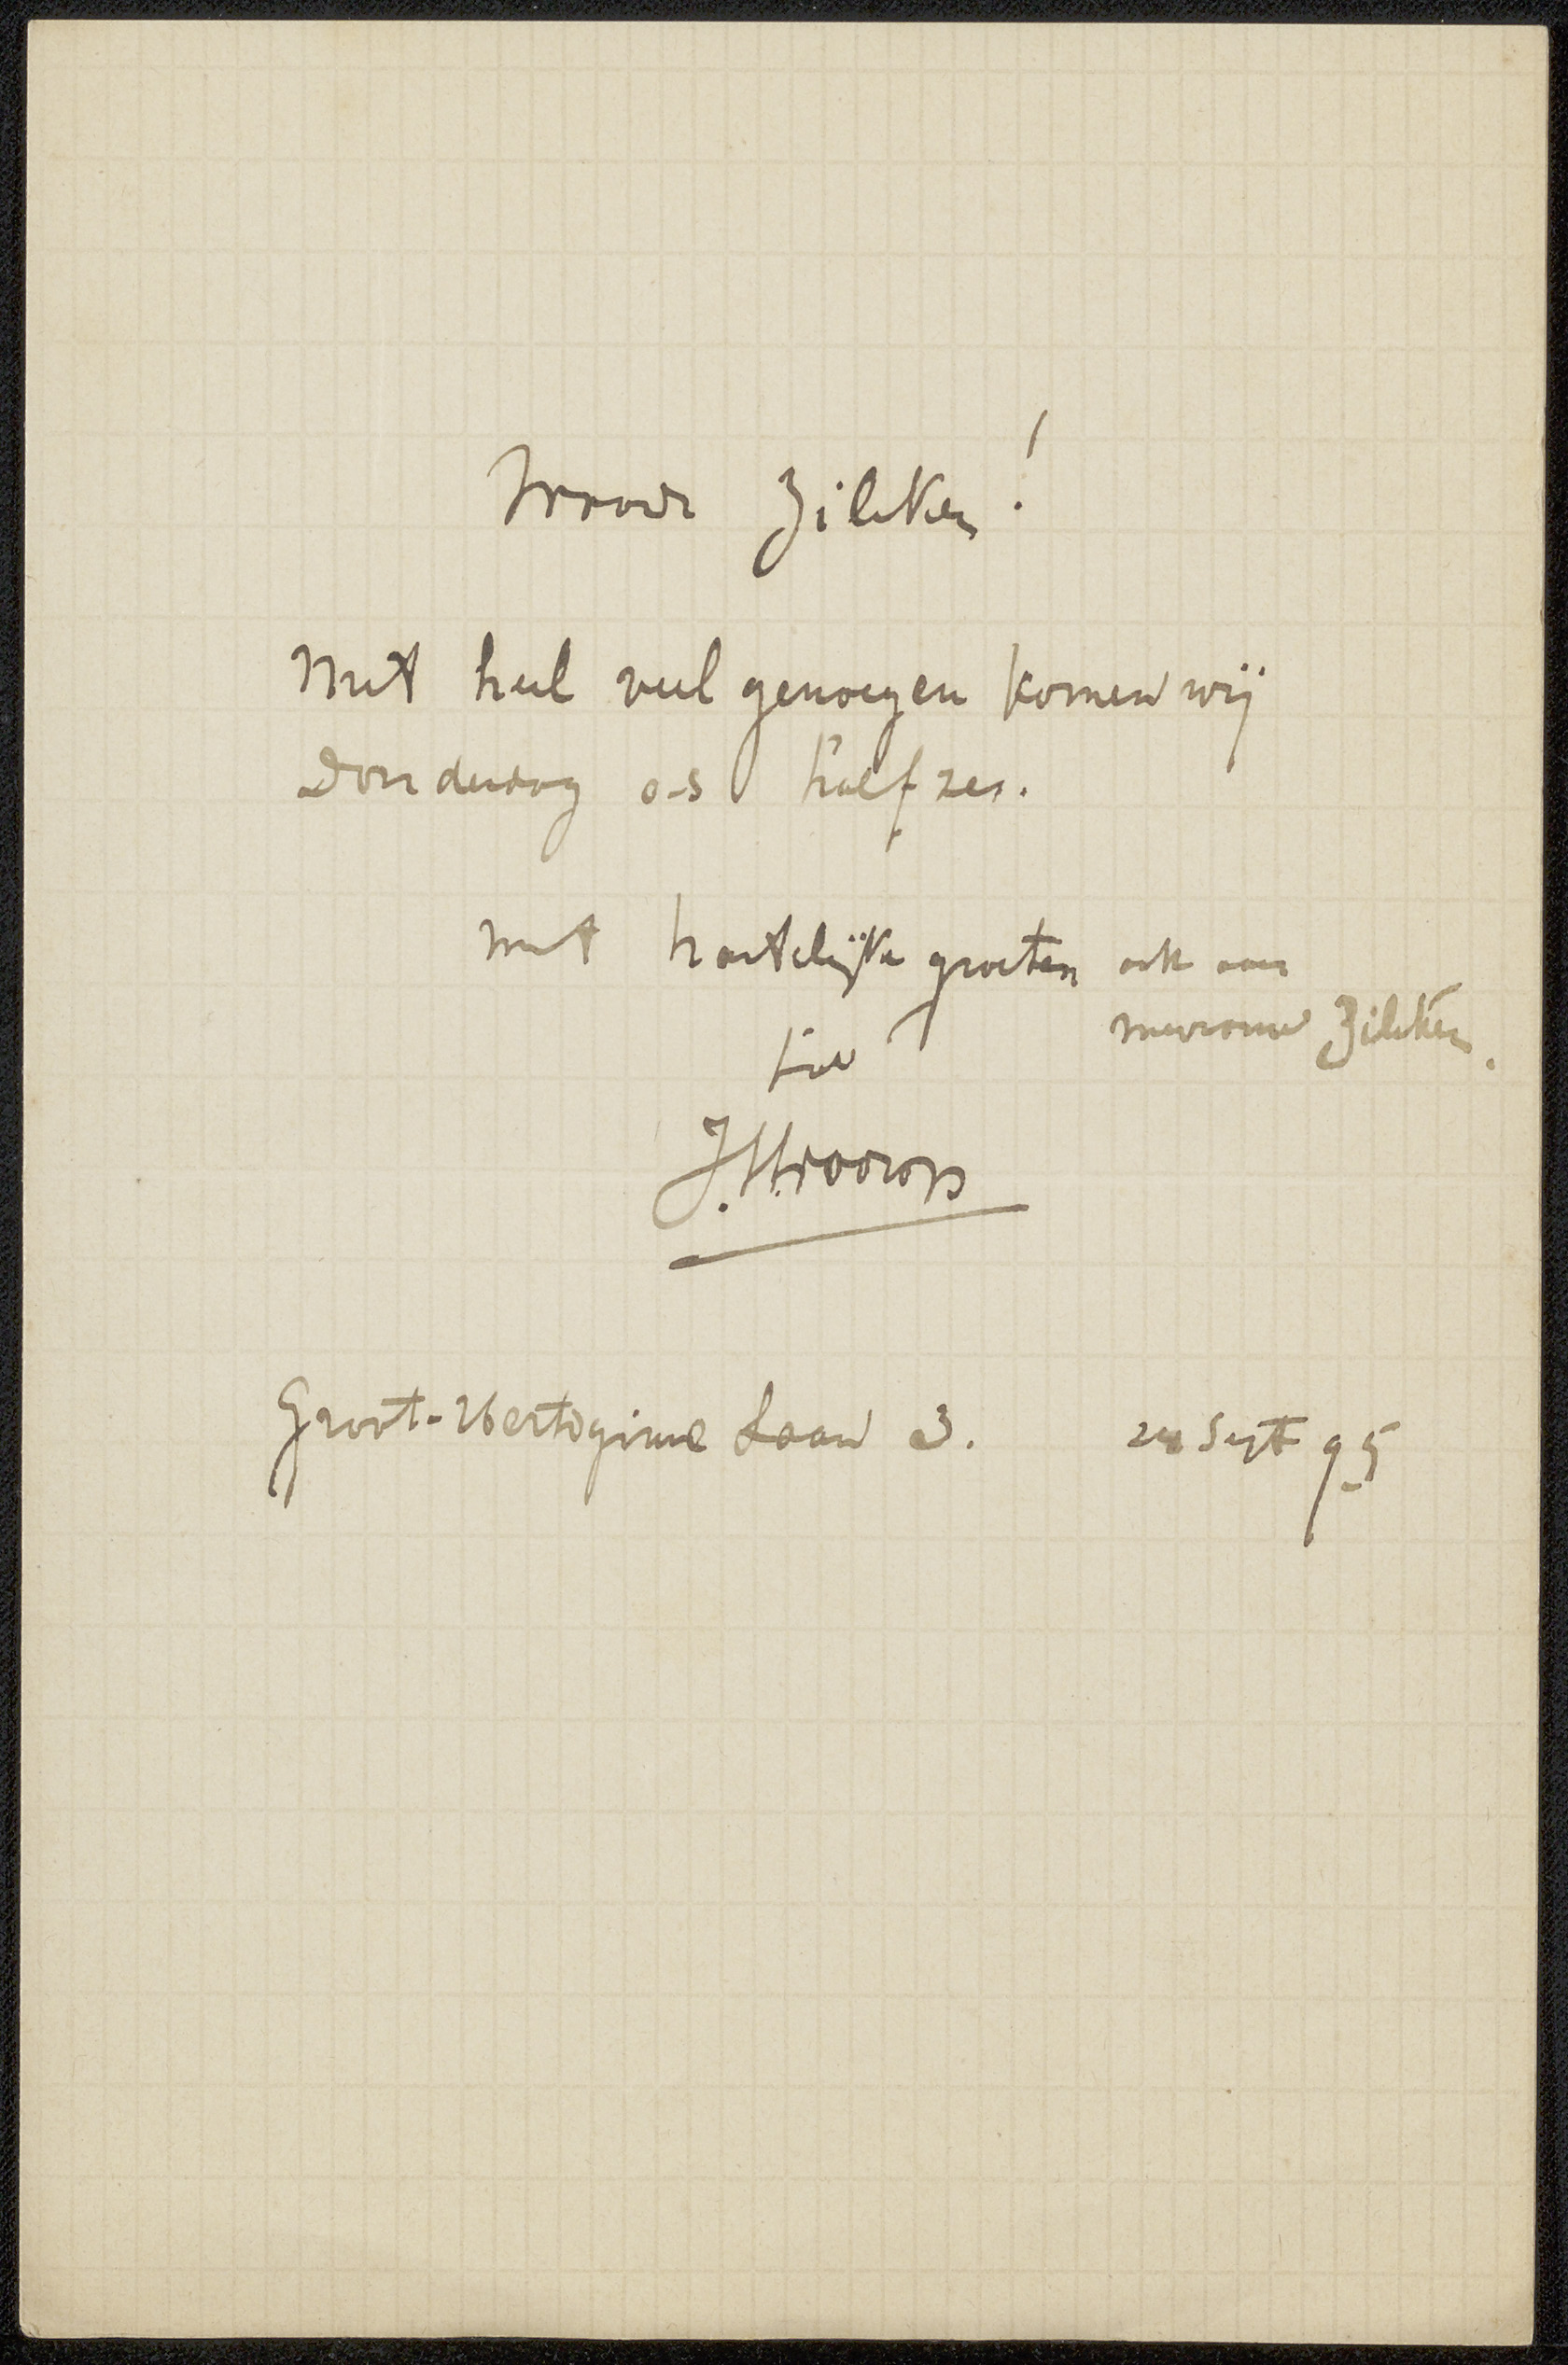 Waarde Zilcken!
Met heel veel genoegen komen wij
Donderdag a.s half zes.
met hartelijke groeten ook aan
mevrouw Zilcken.
J.Th.Toorop
Groot-Hertoginne Laan 3. 24 Sept 95